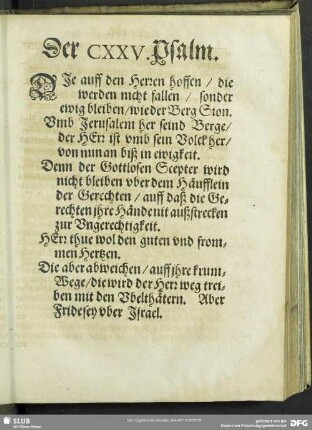 Der CXXV. Psalm.
DJe auff den Herren hoffen / die
werden nicht fallen / sonder
ewig bleiben / wie der Berg Sion.
Vmb Jerusalem her seind Berge /
der HErr ist vmb sein Volck her /
von nun an biß in ewigkeit.
Denn der Gottlosen Scepter wird
nicht bleiben vber dem Häufflein
der Gerechten / auff daß die Ge-
rechten jhre Hände nit außstrecken
zur Vngerechtigkeit.
HErr thue wol den guten vnd from-
men Hertzen.
Die aber abweichen / auff jhre krum-
Wege / die wird der Herr weg trei-
ben mit den Vbelthätern. Aber
Fride sey vber Jsrael.
SLUB
DFG